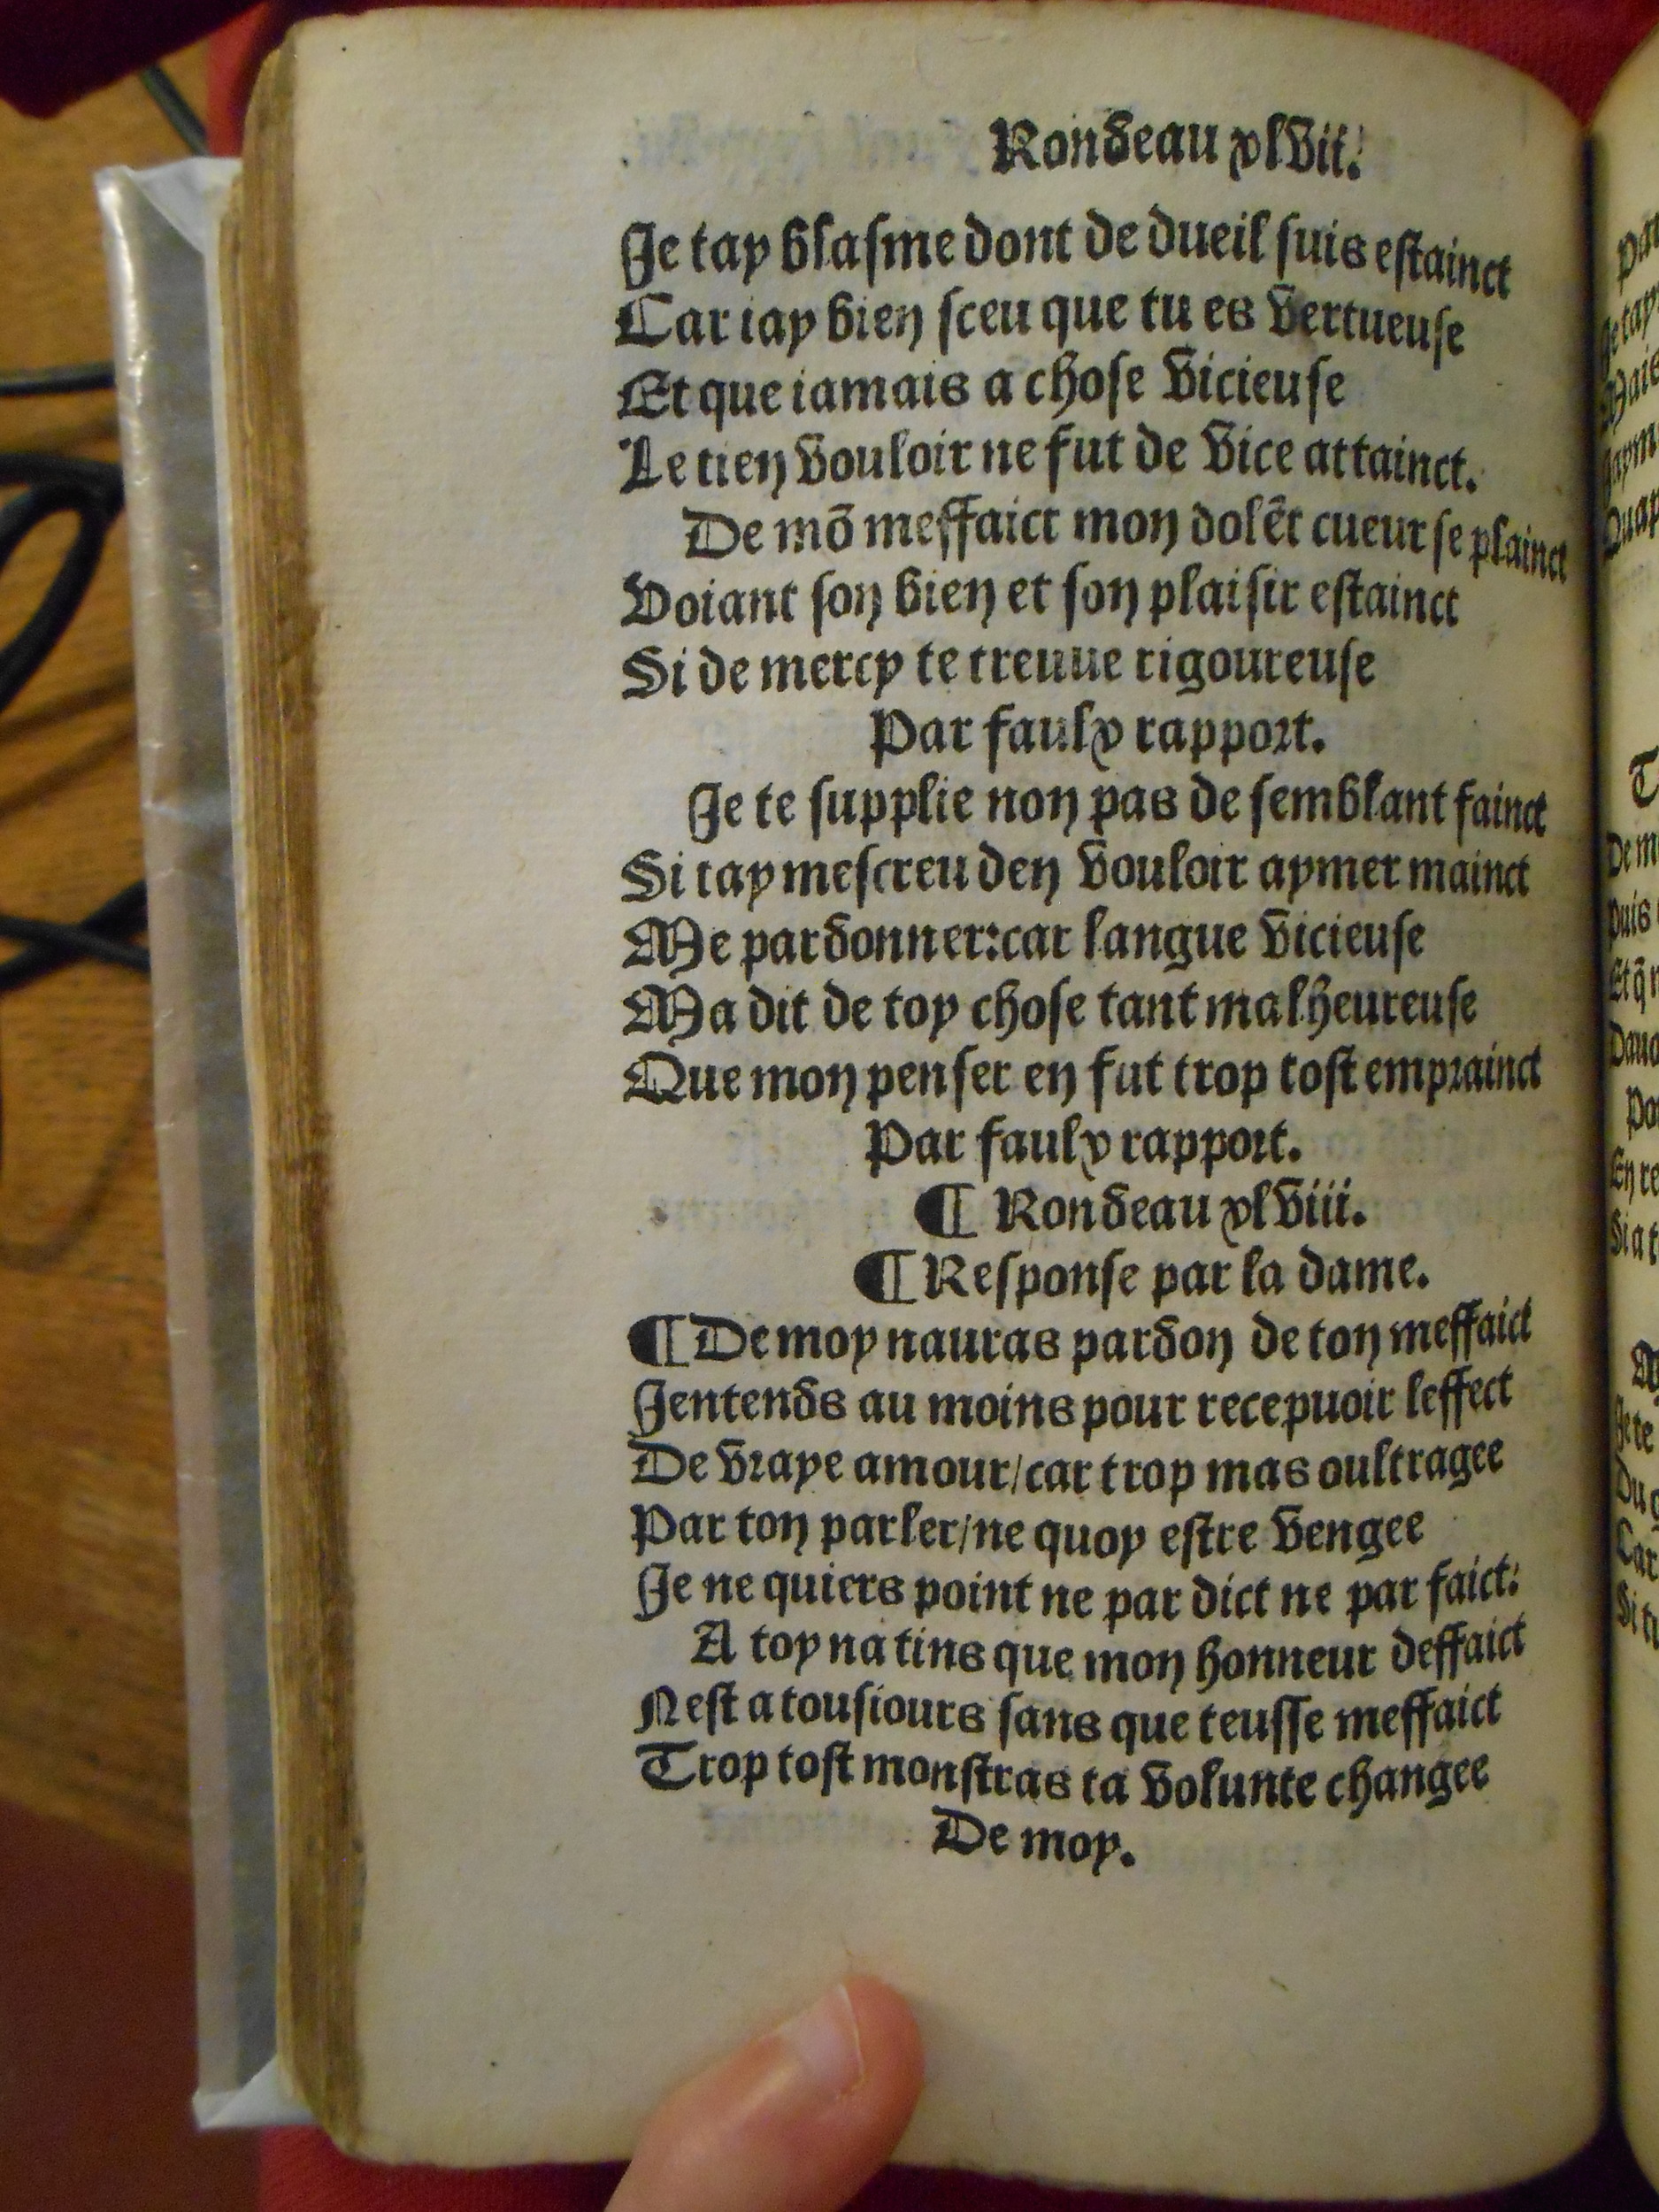 Rondeau xlvii.
Je tay blasme dont de dueil suis estainct
Car iay bien sceu que tu es vertueuse
Et que iamais a chose vicieuse
Le tien vouloir ne fut de vice attainct.
De mõ meffaict mon dolẽt cueur se plainct
Voiant son bien et son plaisir estainct
Si de mercy te treuue rigoureuse
Par faulx rapport.
Je te supplie non pas de semblant fainct
Si tay mescreu den vouloir aymer mainct
Me pardonner:car langue vicieuse
Ma dit de toy chose tant malheureuse
Que mon penser en fut trop tost emprainct
Par faulx rapport.
¶ Rondeau xlviii.
¶ Response par la dame.
¶ De moy nauras pardon de ton meffaict
Jentends au moins pour recepuoir leffect
De vraye amour/car trop mas oultragee
Par ton parler/ne quoy estre vengee
Je ne quiers point ne par dict ne par faict:
A toy na tins que mon honneur deffaict
Nest a tousiours sans que teusse meffaict
Trop tost monstras ta volunte changee
De moy.